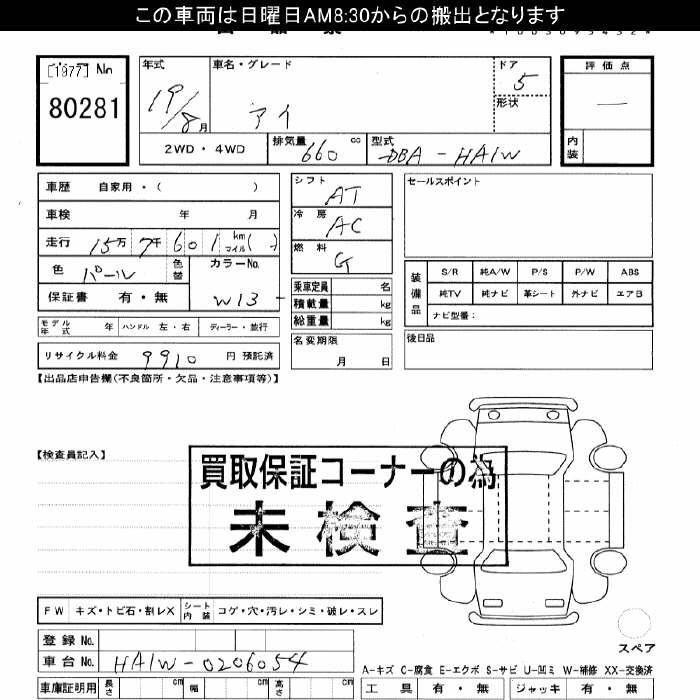 この車両は日曜日AM8:30からの搬出となります
[1977] No
80281
年式 19/8月
車名・グレード アイ
ドア 5
形状
評価点 —
内装
2WD・4WD
排気量 660 cc
型式 DBA-HA1W
車歴 自家用・( )
車検 年 月
走行 15万7千601 km マイル( )
色 パール 色替
カラーNo. W13
保証書 有・無
シフト AT
冷房 AC
燃料 G
乗車定員 名
積載量 kg
総重量 kg
モデル年式 年 ハンドル 左・右 ディーラー・並行
リサイクル料金 9910 円 預託済
名変期限 月 日
セールスポイント
装備品
S/R 純A/W P/S P/W ABS
純TV 純ナビ 革シート 外ナビ エアB
ナビ型番:
後日品
【出品店申告欄(不良箇所・欠品・注意事項等)】
【検査員記入】
買取保証コーナーの為
未検査
FW キズ・トビ石・割レX シート内装 コゲ・穴・汚レ・シミ・破レ・スレ
登録No.
車台No. HA1W-0206054
スペア
A-キズ C-腐食 E-エクボ S-サビ U-凹ミ W-補修 XX-交換済
車庫証明用 長さ cm 幅 cm 高さ cm
工具 有・無 ジャッキ 有・無